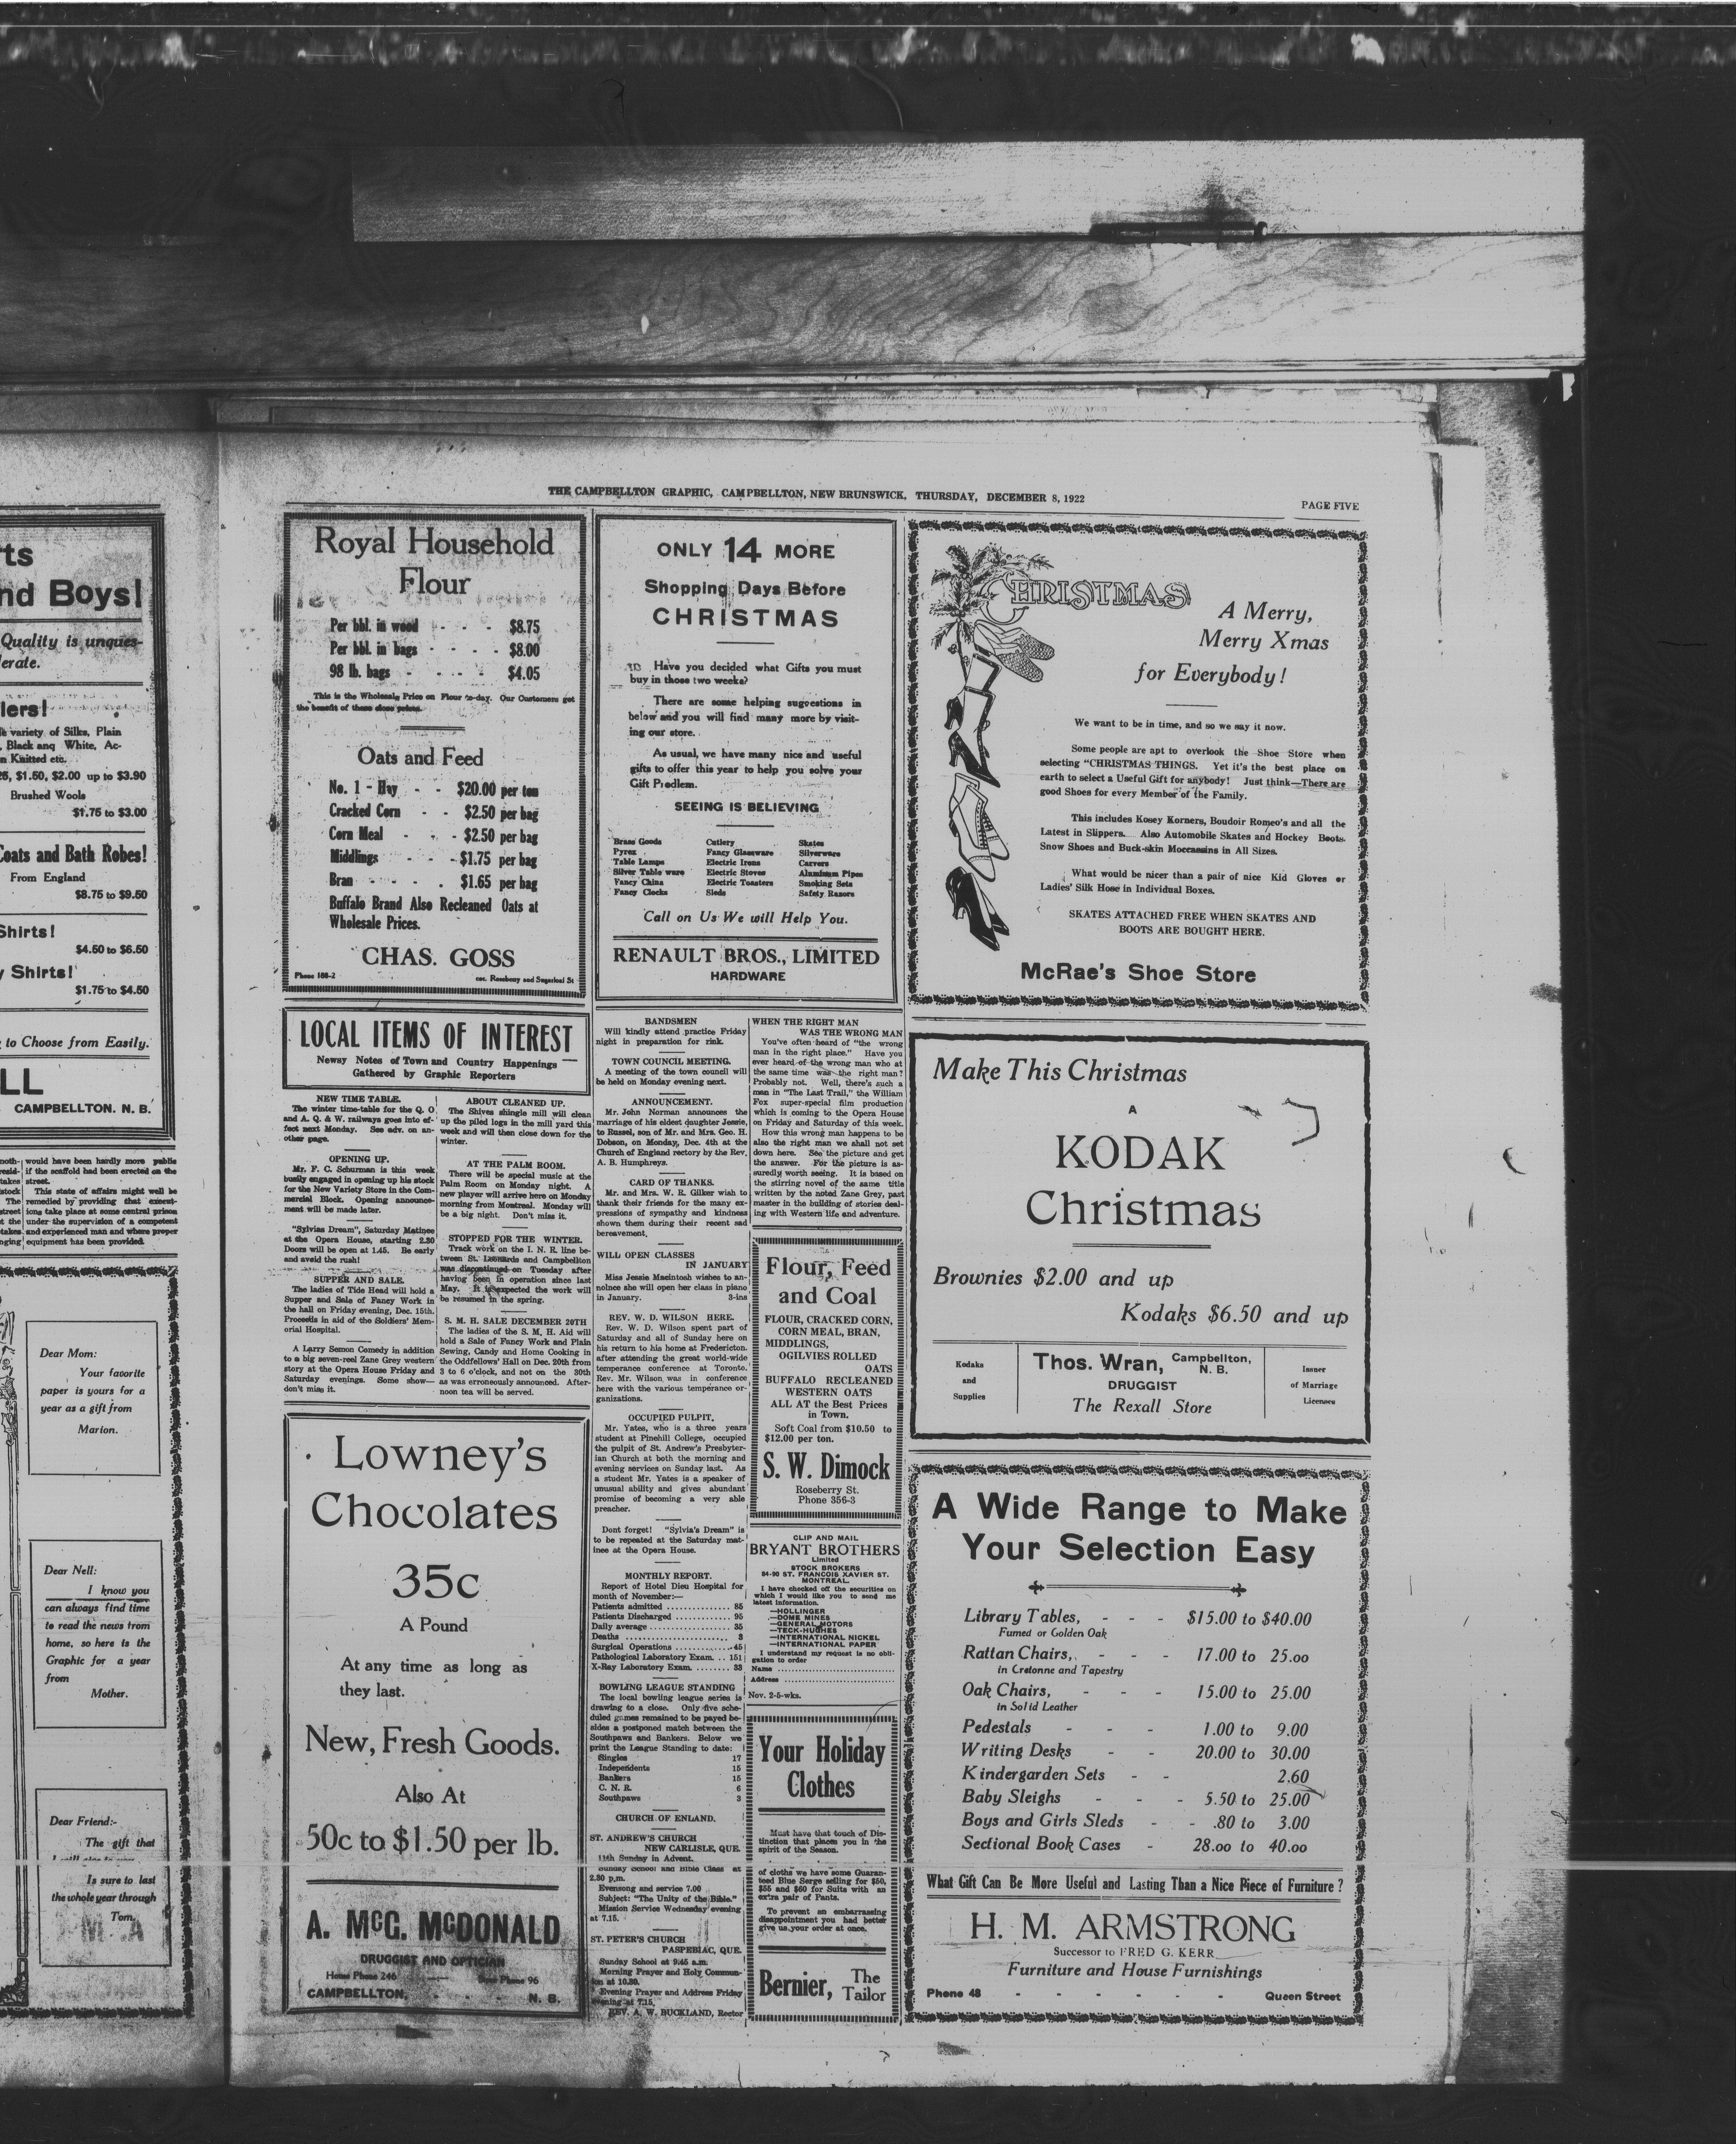 THE CAMPBELLTON GRAPHIC, CAMPBELLTON, NEW BRUNSWICK, THURSDAY, DECEMBER 8, 1922
PAGE FIVE
rts
nd Boys!
Quality is unques-
erate.
lers!
variety of Silks, Plain
, Black anq White, Ac-
n Knitted etc.
$1.50, $2.00 up to $3.90
Brushed Wools
$1.75 to $3.00
Coats and Bath Robes!
From England
$8.75 to $9.50
Shirts!
$4.50 to $6.50
y Shirts!
$1.75 to $4.50
to Choose from Easily.
LL
CAMPBELLTON. N. B.
would have been hardly more public
if the scaffold had been erected on the
street.
This state of affairs might well be
remedied by providing that execut-
ions take place at some central prison
under the supervision of a competent
and experienced man and where proper
equipment has been provided.
Dear Mom:
Your favorite
paper is yours for a
year as a gift from
Marion.
Dear Nell:
I know you
can always find time
to read the news from
home, so here is the
Graphic for a year
from
Mother.
Dear Friend:-
The gift that
Is sure to last
the whole year through
Tom.
Royal Household
Flour
Per bbl. in wood - - - $8.75
Per bbl. in bags - - - - $8.00
98 lb. bags - - - - $4.05
This is the Wholesale Price on Flour to-day. Our Customers get
the benefit of these close prices.
Oats and Feed
No. 1 - Hay - - $20.00 per ton
Cracked Corn - - $2.50 per bag
Corn Meal - - - $2.50 per bag
Middlings - - - $1.75 per bag
Bran - - - - $1.65 per bag
Buffalo Brand Also Recleaned Oats at
Wholesale Prices.
CHAS. GOSS
Phone 188-2
cor. Roseberry and Sugarloaf St
LOCAL ITEMS OF INTEREST
Newsy Notes of Town and Country Happenings
Gathered by Graphic Reporters
NEW TIME TABLE.
The winter time-table for the Q. O
and A. Q. & W. railways goes into ef-
fect next Monday. See adv. on an-
other page.
OPENING UP.
Mr. F. C. Schurman is this week
busily engaged in opening up his stock
for the New Variety Store in the Com-
mercial Block. Opening announce-
ment will be made later.
"Sylvias Dream", Saturday Matinee
at the Opera House, starting 2.30
Doors will be open at 1.45. Be early
and aveid the rush!
SUPPER AND SALE.
The ladies of Tide Head will hold a
Supper and Sale of Fancy Work in
the hall on Friday evening, Dec. 15th.
Proceeds in aid of the Soldiers' Mem-
orial Hospital.
A Larry Semon Comedy in addition
to a big seven-reel Zane Grey western
story at the Opera House Friday and
Saturday evenings. Some show—
don't miss it.
ABOUT CLEANED UP.
The Shives shingle mill will clean
up the piled logs in the mill yard this
week and will then close down for the
winter.
AT THE PALM ROOM.
There will be special music at the
Palm Room on Monday night. A
new player will arrive here on Monday
morning from Montreal. Monday will
be a big night. Don't miss it.
STOPPED FOR THE WINTER.
Track work on the I. N. R. line be-
tween St. Leonards and Campbellton
was discontinued on Tuesday after
having been in operation since last
May. It is expected the work will
be resumed in the spring.
S. M. H. SALE DECEMBER 20TH
The ladies of the S. M. H. Aid will
hold a Sale of Fancy Work and Plain
Sewing, Candy and Home Cooking in
the Oddfellows' Hall on Dec. 20th from
3 to 6 o'clock, and not on the 30th
as was erroneously announced. After-
noon tea will be served.
Lowney's
Chocolates
35c
A Pound
At any time as long as
they last.
New, Fresh Goods.
Also At
50c to $1.50 per lb.
A. McG. McDONALD
DRUGGIST AND OPTICIAN
Home Phone 246 Phone 96
CAMPBELLTON, - - - N. B.
ONLY 14 MORE
Shopping Days Before
CHRISTMAS
Have you decided what Gifts you must
buy in those two weeks?
There are some helping suggestions in
below and you will find many more by visit-
ing our store.
As usual, we have many nice and useful
gifts to offer this year to help you solve your
Gift Prodlem.
SEEING IS BELIEVING
Brass Goods Cutlery Skates
Pyrex Fancy Glassware Silverware
Table Lamps Electric Irons Carvers
Silver Table ware Electric Stoves Aluminum Pipes
Fancy China Electric Toasters Smoking Sets
Fancy Clocks Sleds Safety Razors
Call on Us We will Help You.
RENAULT BROS., LIMITED
HARDWARE
BANDSMEN
Will kindly attend practice Friday
night in preparation for rink.
TOWN COUNCIL MEETING.
A meeting of the town council will
be held on Monday evening next.
ANNOUNCEMENT.
Mr. John Norman announces the
marriage of his eldest daughter Jessie,
to Russel, son of Mr. and Mrs. Geo. H.
Dobson, on Monday, Dec. 4th at the
Church of England rectory by the Rev.
A. B. Humphreys.
CARD OF THANKS.
Mr. and Mrs. W. R. Gilker wish to
thank their friends for the many ex-
pressions of sympathy and kindness
shown them during their recent sad
bereavement.
WILL OPEN CLASSES
IN JANUARY
Miss Jessie Macintosh wishes to an-
nolnce she will open her class in piano
in January. 3-ins
REV. W. D. WILSON HERE.
Rev. W. D. Wilson spent part of
Saturday and all of Sunday here on
his return to his home at Fredericton.
after attending the great world-wide
temperance conference at Toronto.
Rev. Mr. Wilson was in conference
here with the various temperance or-
ganizations.
OCCUPIED PULPIT.
Mr. Yates, who is a three years
student at Pinehill College, occupied
the pulpit of St. Andrew's Presbyter-
ian Church at both the morning and
evening services on Sunday last. As
a student Mr. Yates is a speaker of
unusual ability and gives abundant
promise of becoming a very able
preacher.
Dont forget! "Sylvia's Dream" is
to be repeated at the Saturday mat-
inee at the Opera House.
MONTHLY REPORT.
Report of Hotel Dieu Hospital for
month of November:—
Patients admitted .......... 85
Patients Discharged .......... 95
Daily average .......... 35
Deaths .......... 3
Surgical Operations .......... 45
Pathological Laboratory Exam. .. 151
X-Ray Laboratory Exam. ........ 33
BOWLING LEAGUE STANDING
The local bowling league series is
drawing to a close. Only five sche-
duled games remained to be payed be-
sides a postponed match between the
Southpaws and Bankers. Below we
print the League Standing to date:
Singles 17
Independents 15
Bankers 15
C. N. R. 6
Southpaws 3
CHURCH OF ENLAND.
ST. ANDREW'S CHURCH
NEW CARLISLE, QUE.
11th Sunday in Advent.
Sunday School and Bible Class at
2.30 p.m.
Evensong and service 7.00
Subject: "The Unity of the Bible."
Mission Service Wednesday evening
at 7.15.
ST. PETER'S CHURCH
PASPEBIAC, QUE.
Sunday School at 9.45 a.m.
Morning Prayer and Holy Commun-
ion at 10.30.
Evening Prayer and Address Friday
evening at 7.15.
REV. A. W. BUCKLAND, Rector
WHEN THE RIGHT MAN
WAS THE WRONG MAN
You've often heard of "the wrong
man in the right place." Have you
ever heard of the wrong man who at
the same time was the right man?
Probably not. Well, there's such a
man in "The Last Trail," the William
Fox super-special film production
which is coming to the Opera House
on Friday and Saturday of this week.
How this wrong man happens to be
also the right man we shall not set
down here. See the picture and get
the answer. For the picture is as-
suredly worth seeing. It is based on
the stirring novel of the same title
written by the noted Zane Grey, past
master in the building of stories deal-
ing with Western life and adventure.
Flour, Feed
and Coal
FLOUR, CRACKED CORN,
CORN MEAL, BRAN,
MIDDLINGS,
OGILVIES ROLLED
OATS
BUFFALO RECLEANED
WESTERN OATS
ALL AT the Best Prices
in Town.
Soft Coal from $10.50 to
$12.00 per ton.
S. W. Dimock
Roseberry St.
Phone 356-3
CLIP AND MAIL
BRYANT BROTHERS
Limited
STOCK BROKERS
84-90 ST. FRANCOIS XAVIER ST.
MONTREAL.
I have checked off the securities on
which I would like you to send me
latest information.
—HOLLINGER
—DOME MINES
—GENERAL MOTORS
—TECK-HUGHES
—INTERNATIONAL NICKEL
—INTERNATIONAL PAPER
I understand my request is no obli-
gation to order
Name ..........
Address ..........
Nov. 2-5-wks.
Your Holiday
Clothes
Must have that touch of Dis-
tinction that places you in the
spirit of the Season.
of cloths we have some Guaran-
teed Blue Serge selling for $50,
$55 and $60 for Suits with an
extra pair of Pants.
To prevent an embarrassing
disappointment you had better
give us your order at once.
Bernier, The
Tailor
CHRISTMAS
A Merry,
Merry Xmas
for Everybody!
We want to be in time, and so we say it now.
Some people are apt to overlook the Shoe Store when
selecting "CHRISTMAS THINGS. Yet it's the best place on
earth to select a Useful Gift for anybody! Just think—There are
good Shoes for every Member of the Family.
This includes Kosey Korners, Boudoir Romeo's and all the
Latest in Slippers. Also Automobile Skates and Hockey Boots.
Snow Shoes and Buck-skin Moccassins in All Sizes.
What would be nicer than a pair of nice Kid Gloves or
Ladies' Silk Hose in Individual Boxes.
SKATES ATTACHED FREE WHEN SKATES AND
BOOTS ARE BOUGHT HERE.
McRae's Shoe Store
Make This Christmas
A
KODAK
Christmas
Brownies $2.00 and up
Kodaks $6.50 and up
Kodaks
and
Supplies
Thos. Wran, Campbellton,
N. B.
DRUGGIST
The Rexall Store
Issuer
of Marriage
Licenses
A Wide Range to Make
Your Selection Easy
Library Tables, - - - $15.00 to $40.00
Fumed or Golden Oak
Rattan Chairs, - - - 17.00 to 25.00
in Cretonne and Tapestry
Oak Chairs, - - - 15.00 to 25.00
in Solid Leather
Pedestals - - - 1.00 to 9.00
Writing Desks - - 20.00 to 30.00
Kindergarden Sets - - 2.60
Baby Sleighs - - - 5.50 to 25.00
Boys and Girls Sleds - - .80 to 3.00
Sectional Book Cases - 28.00 to 40.00
What Gift Can Be More Useful and Lasting Than a Nice Piece of Furniture?
H. M. ARMSTRONG
Successor to FRED G. KERR
Furniture and House Furnishings
Phone 48 - - - - - - Queen Street